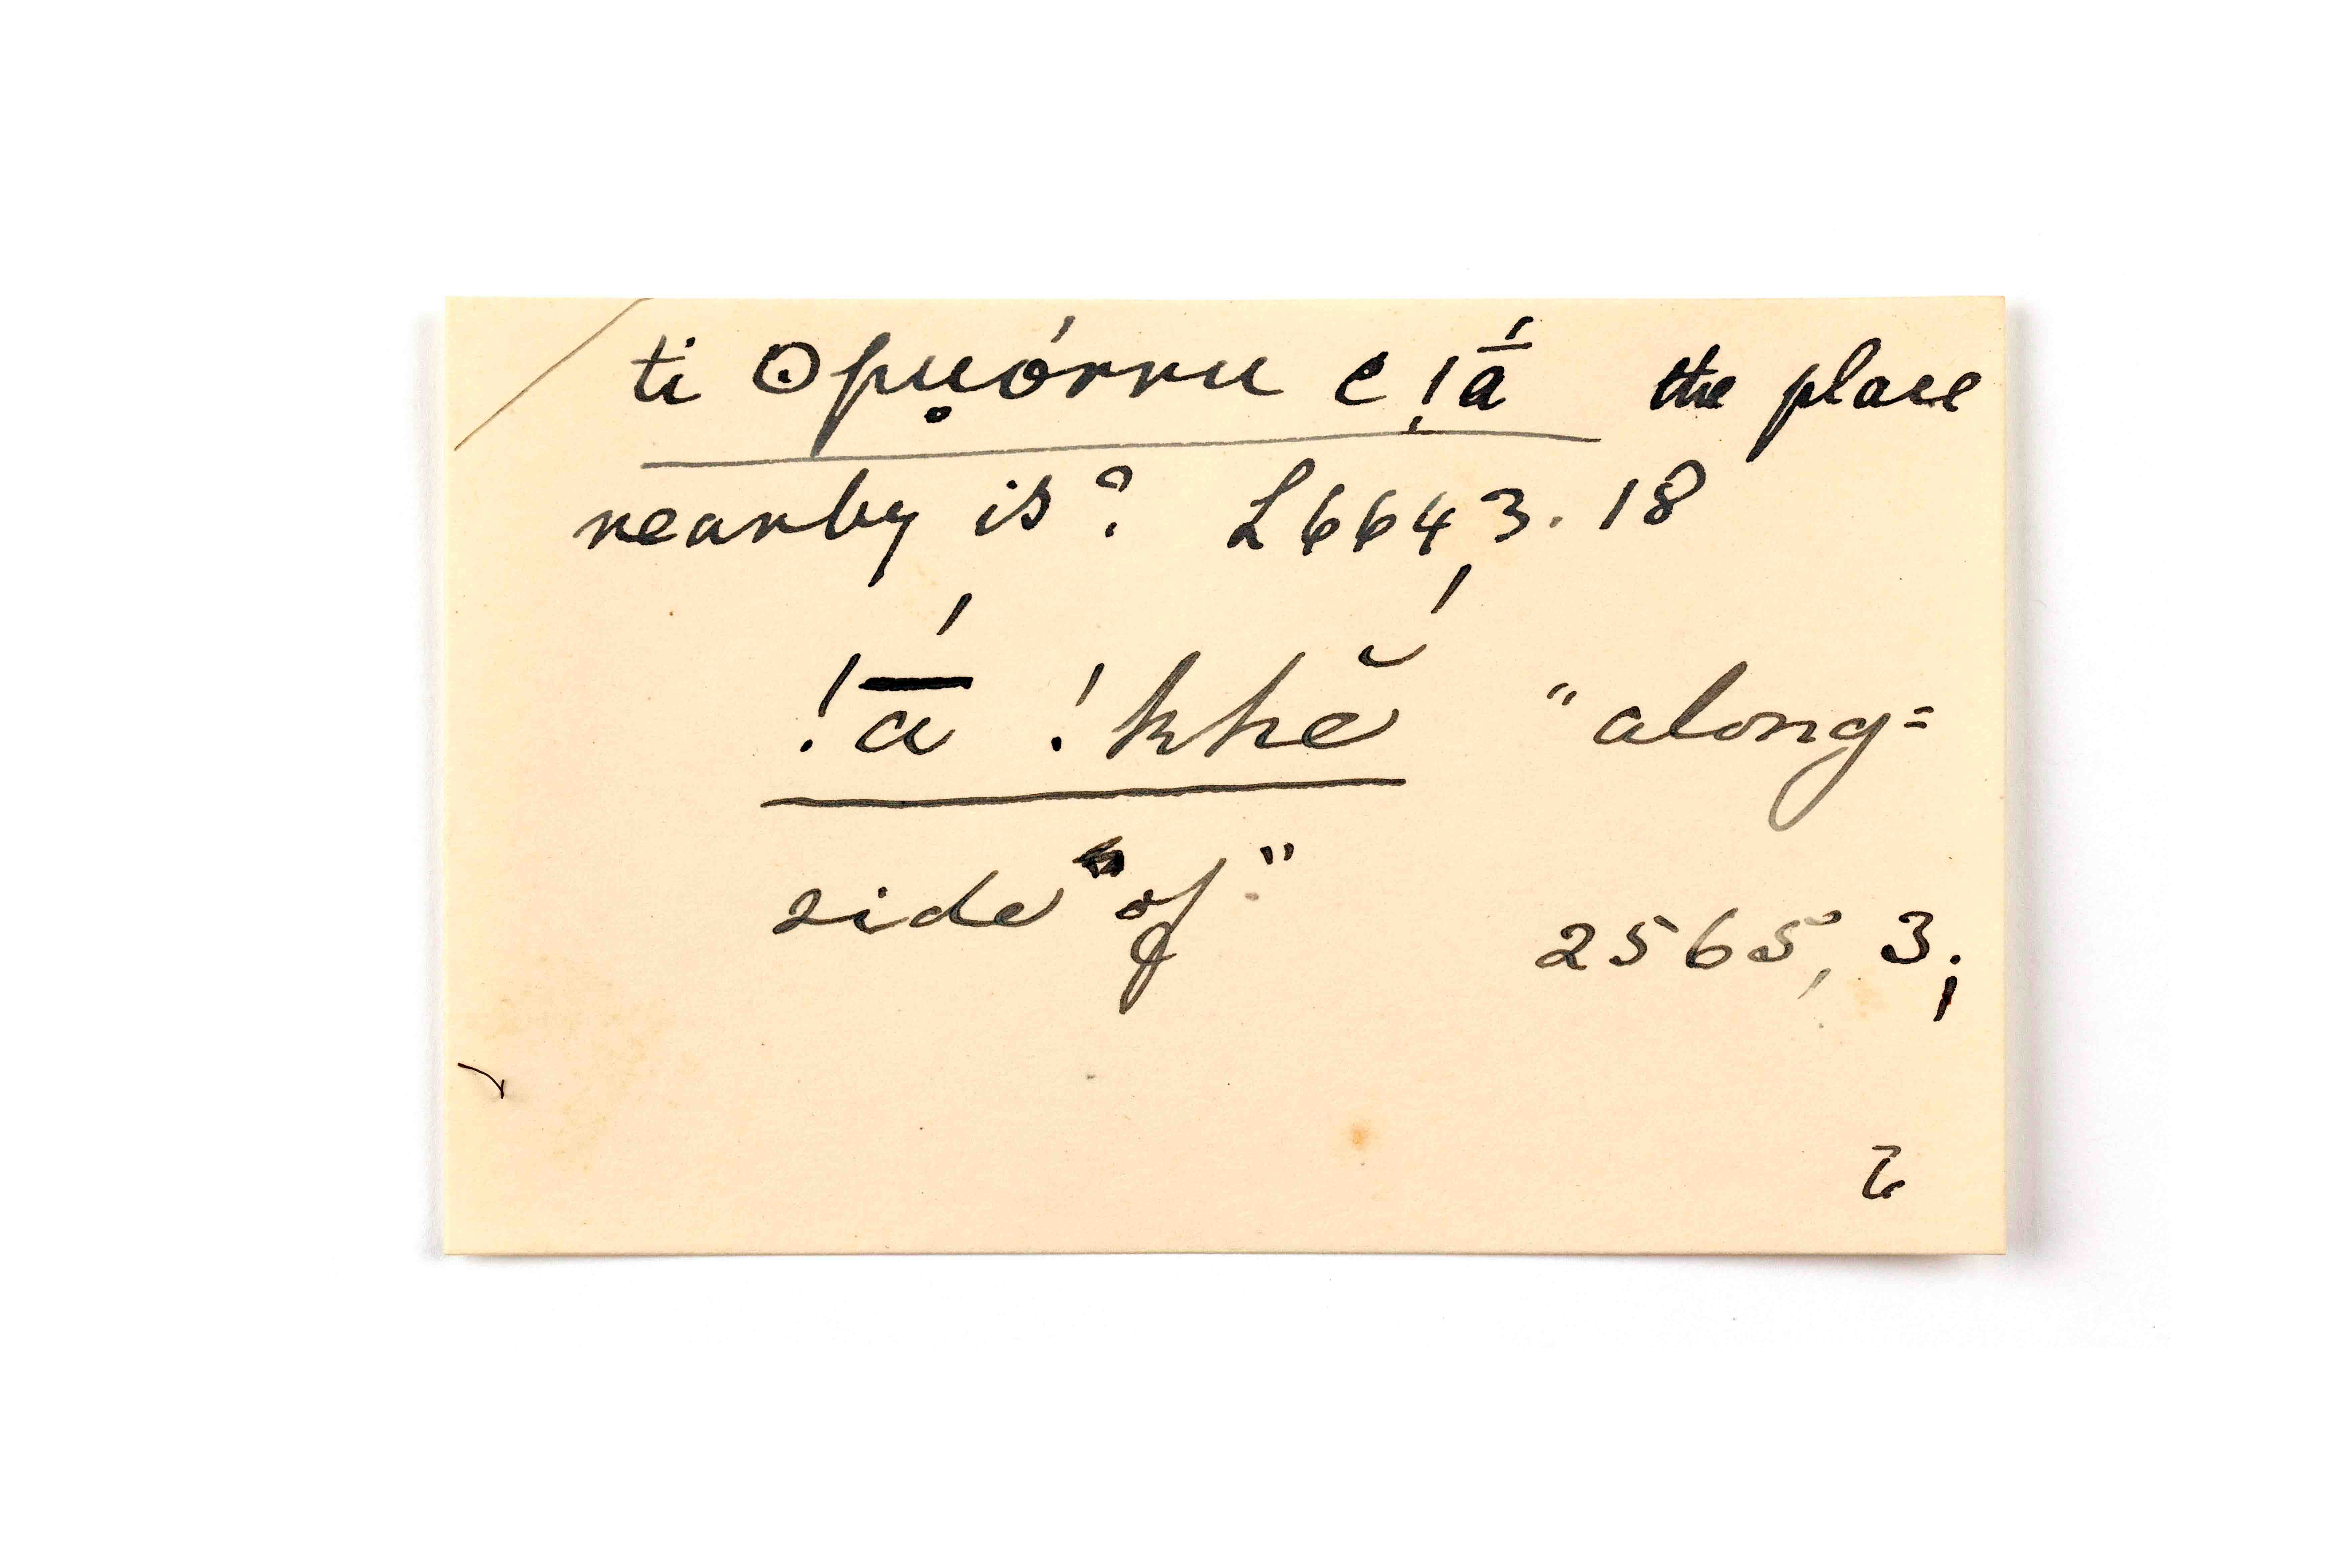 ti ʘpu̥órru e !ā́ the place
nearby is? L6643.18
!ā́ !khĕ́ "along=
side" of"
2565, 3;